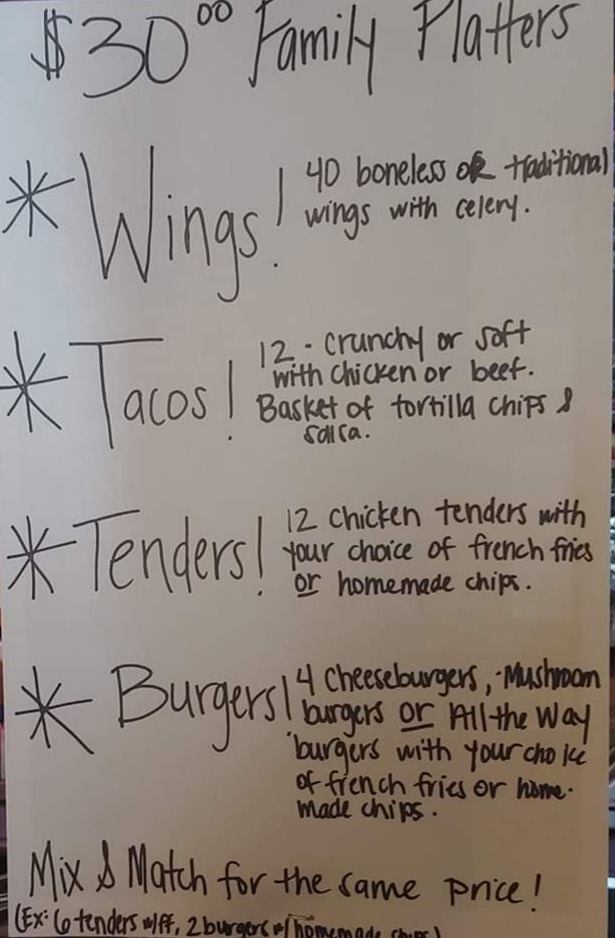 $30⁰⁰ Family Platters
* Wings! 40 boneless OR traditional
wings with celery.
* Tacos! 12 - crunchy or soft
with chicken or beef.
Basket of tortilla chips &
salsa.
* Tenders! 12 chicken tenders with
your choice of french fries
or homemade chips.
* Burgers! 4 cheeseburgers, -Mushroom
burgers or All-the Way
burgers with your choice
of french fries or home-
made chips.
Mix & Match for the same price!
(Ex: 6 tenders w/ff, 2 burgers w/ homemade chips)